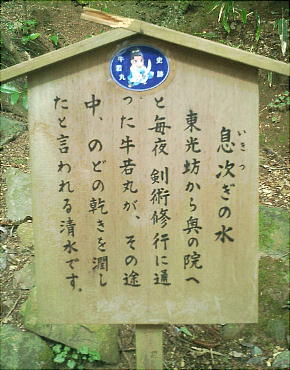 史跡
牛若丸
息次ぎの水
いきつ
東光坊から奥の院へ
と毎夜 剣術修行に通
った牛若丸が、その途
中、のどの乾きを潤し
たと言われる清水です。